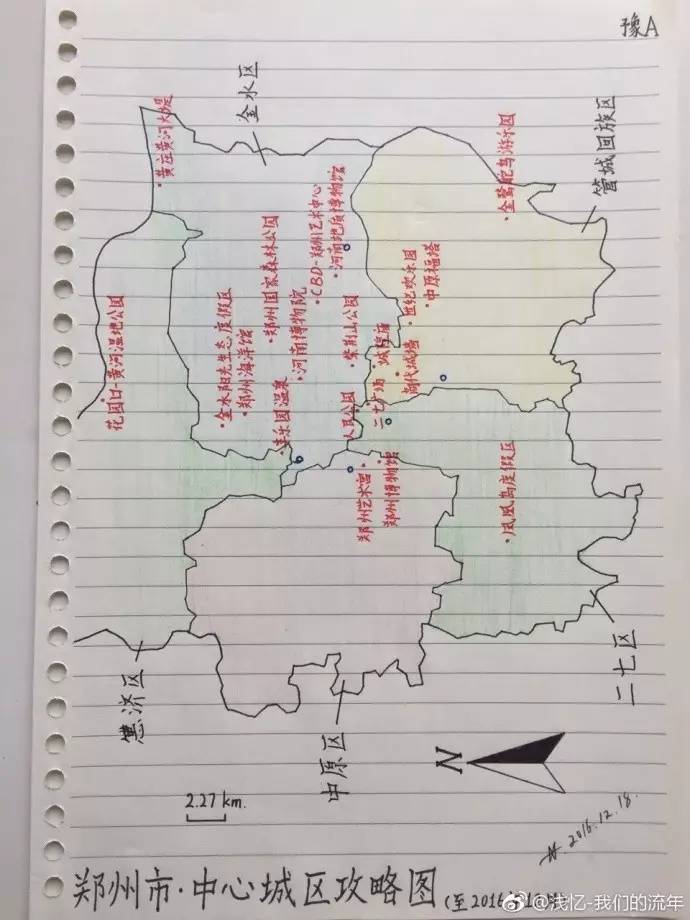 豫A
金水区
黄庄黄河大堤
管城回族区
金鹭鸵鸟游乐园
CBD-郑州艺术中心
河南地质博物馆
郑州国家森林公园
河南博物院
世纪欢乐园
中原福塔
花园口-黄河湿地公园
金水阳光生态度假区
郑州海洋馆
紫荆山公园
城隍庙
商代城墙
丰乐园温泉
人民公园
二七广场
郑州艺术宫
郑州博物馆
凤凰岛度假区
惠济区
中原区
二七区
N
2.27 km.
2016.12.18.
郑州市·中心城区攻略图
@浅忆-我们的流年